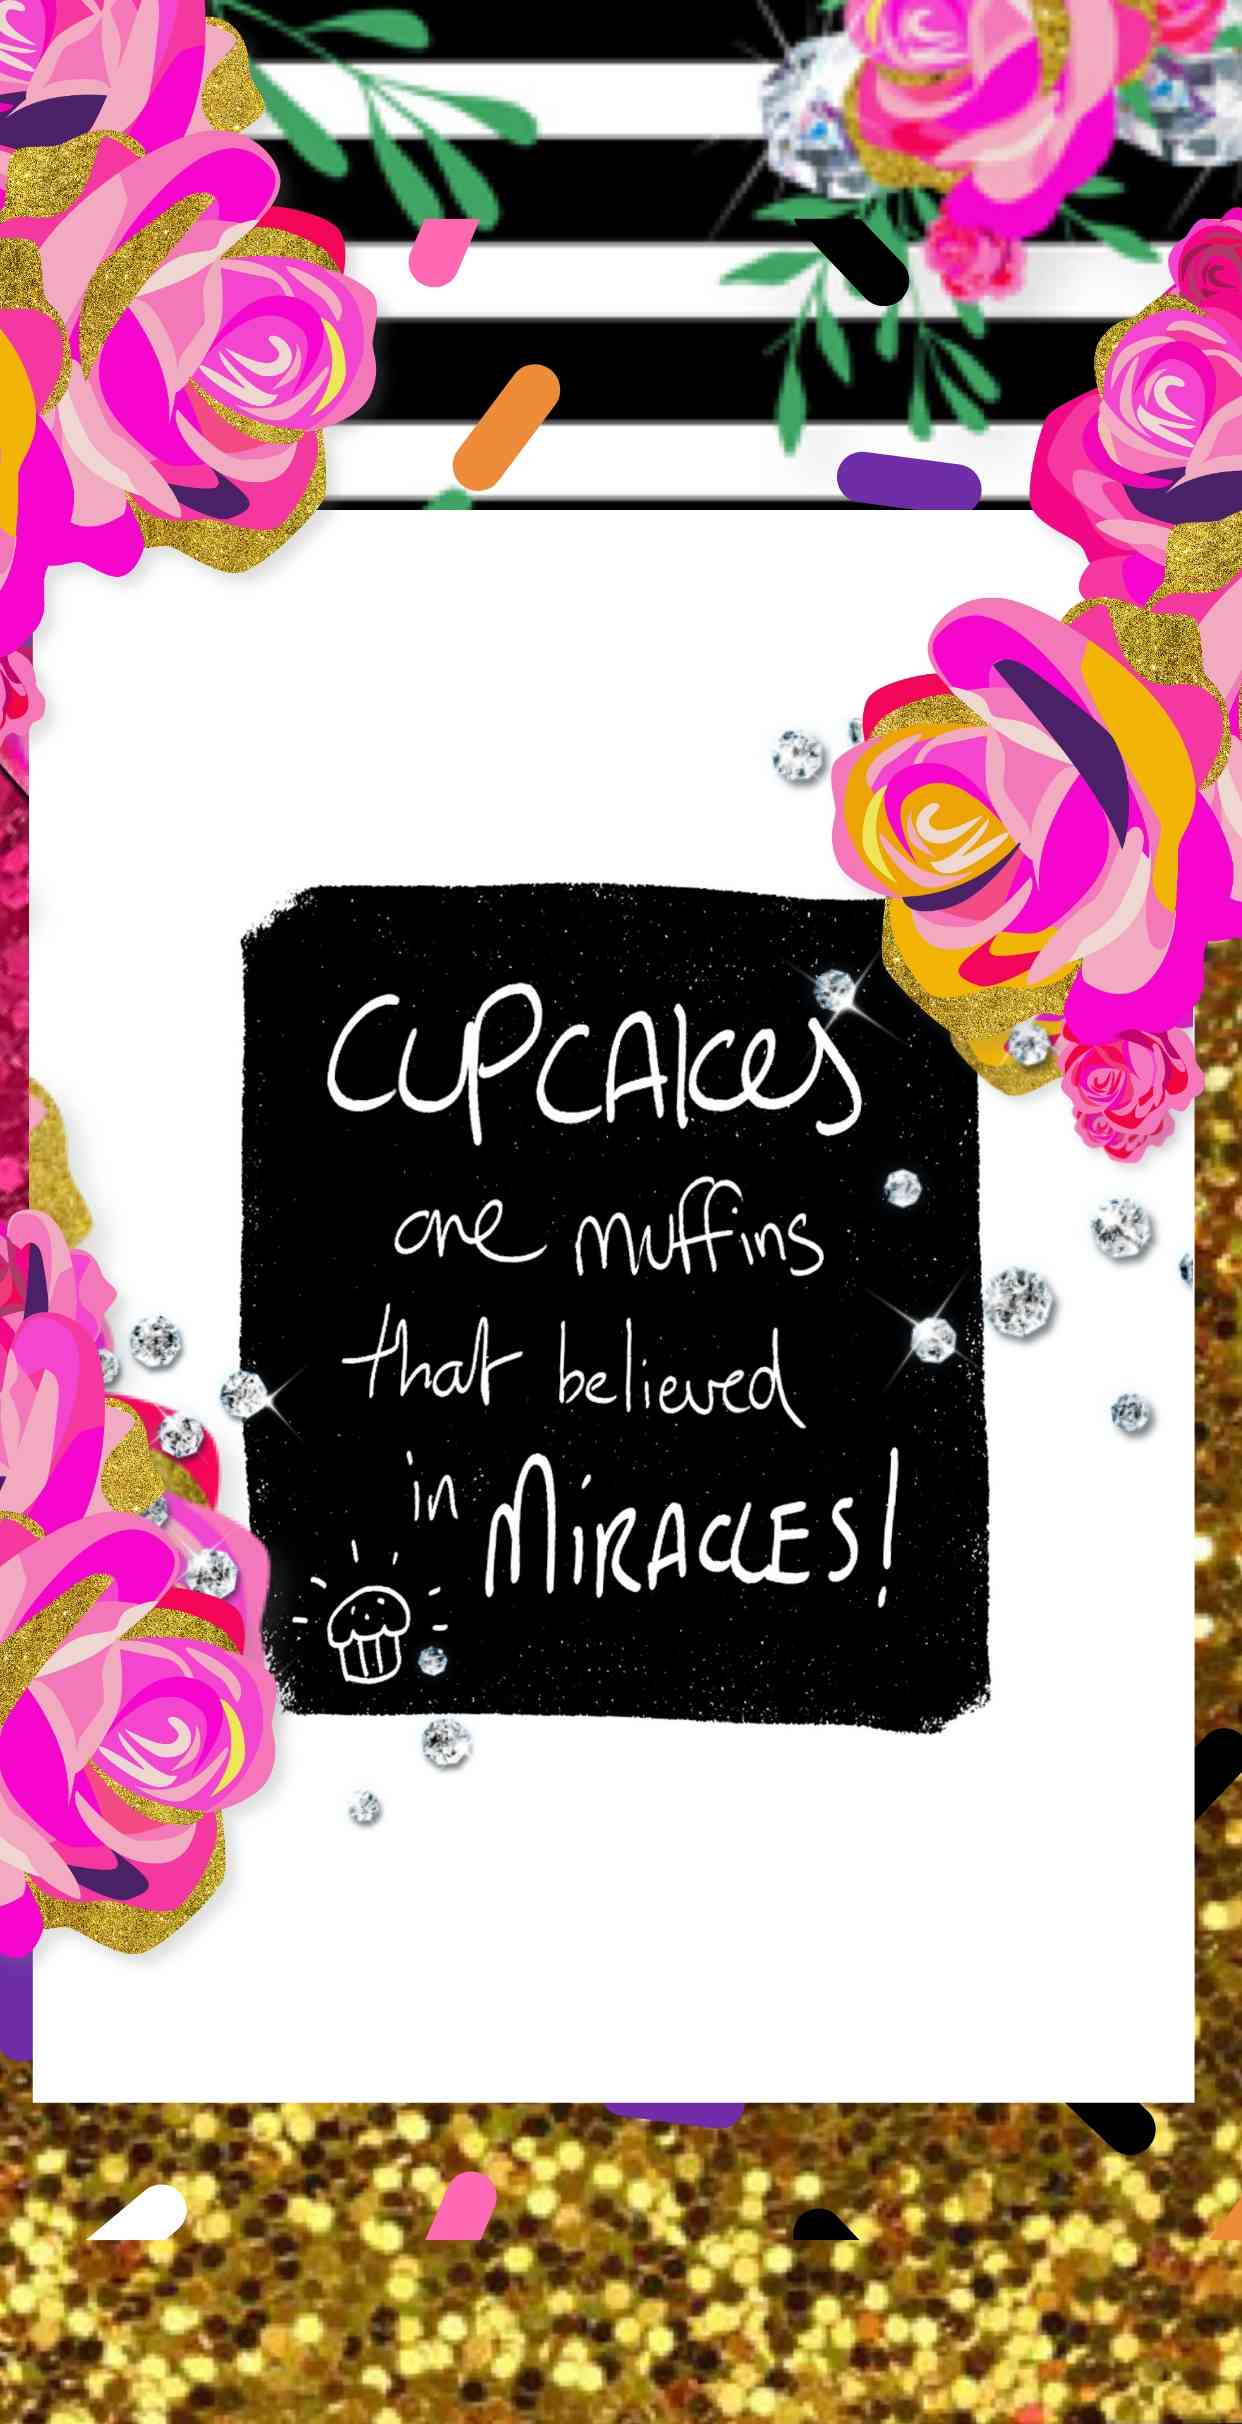 CUPCAKES
are muffins
that believed
in MiRACLES!